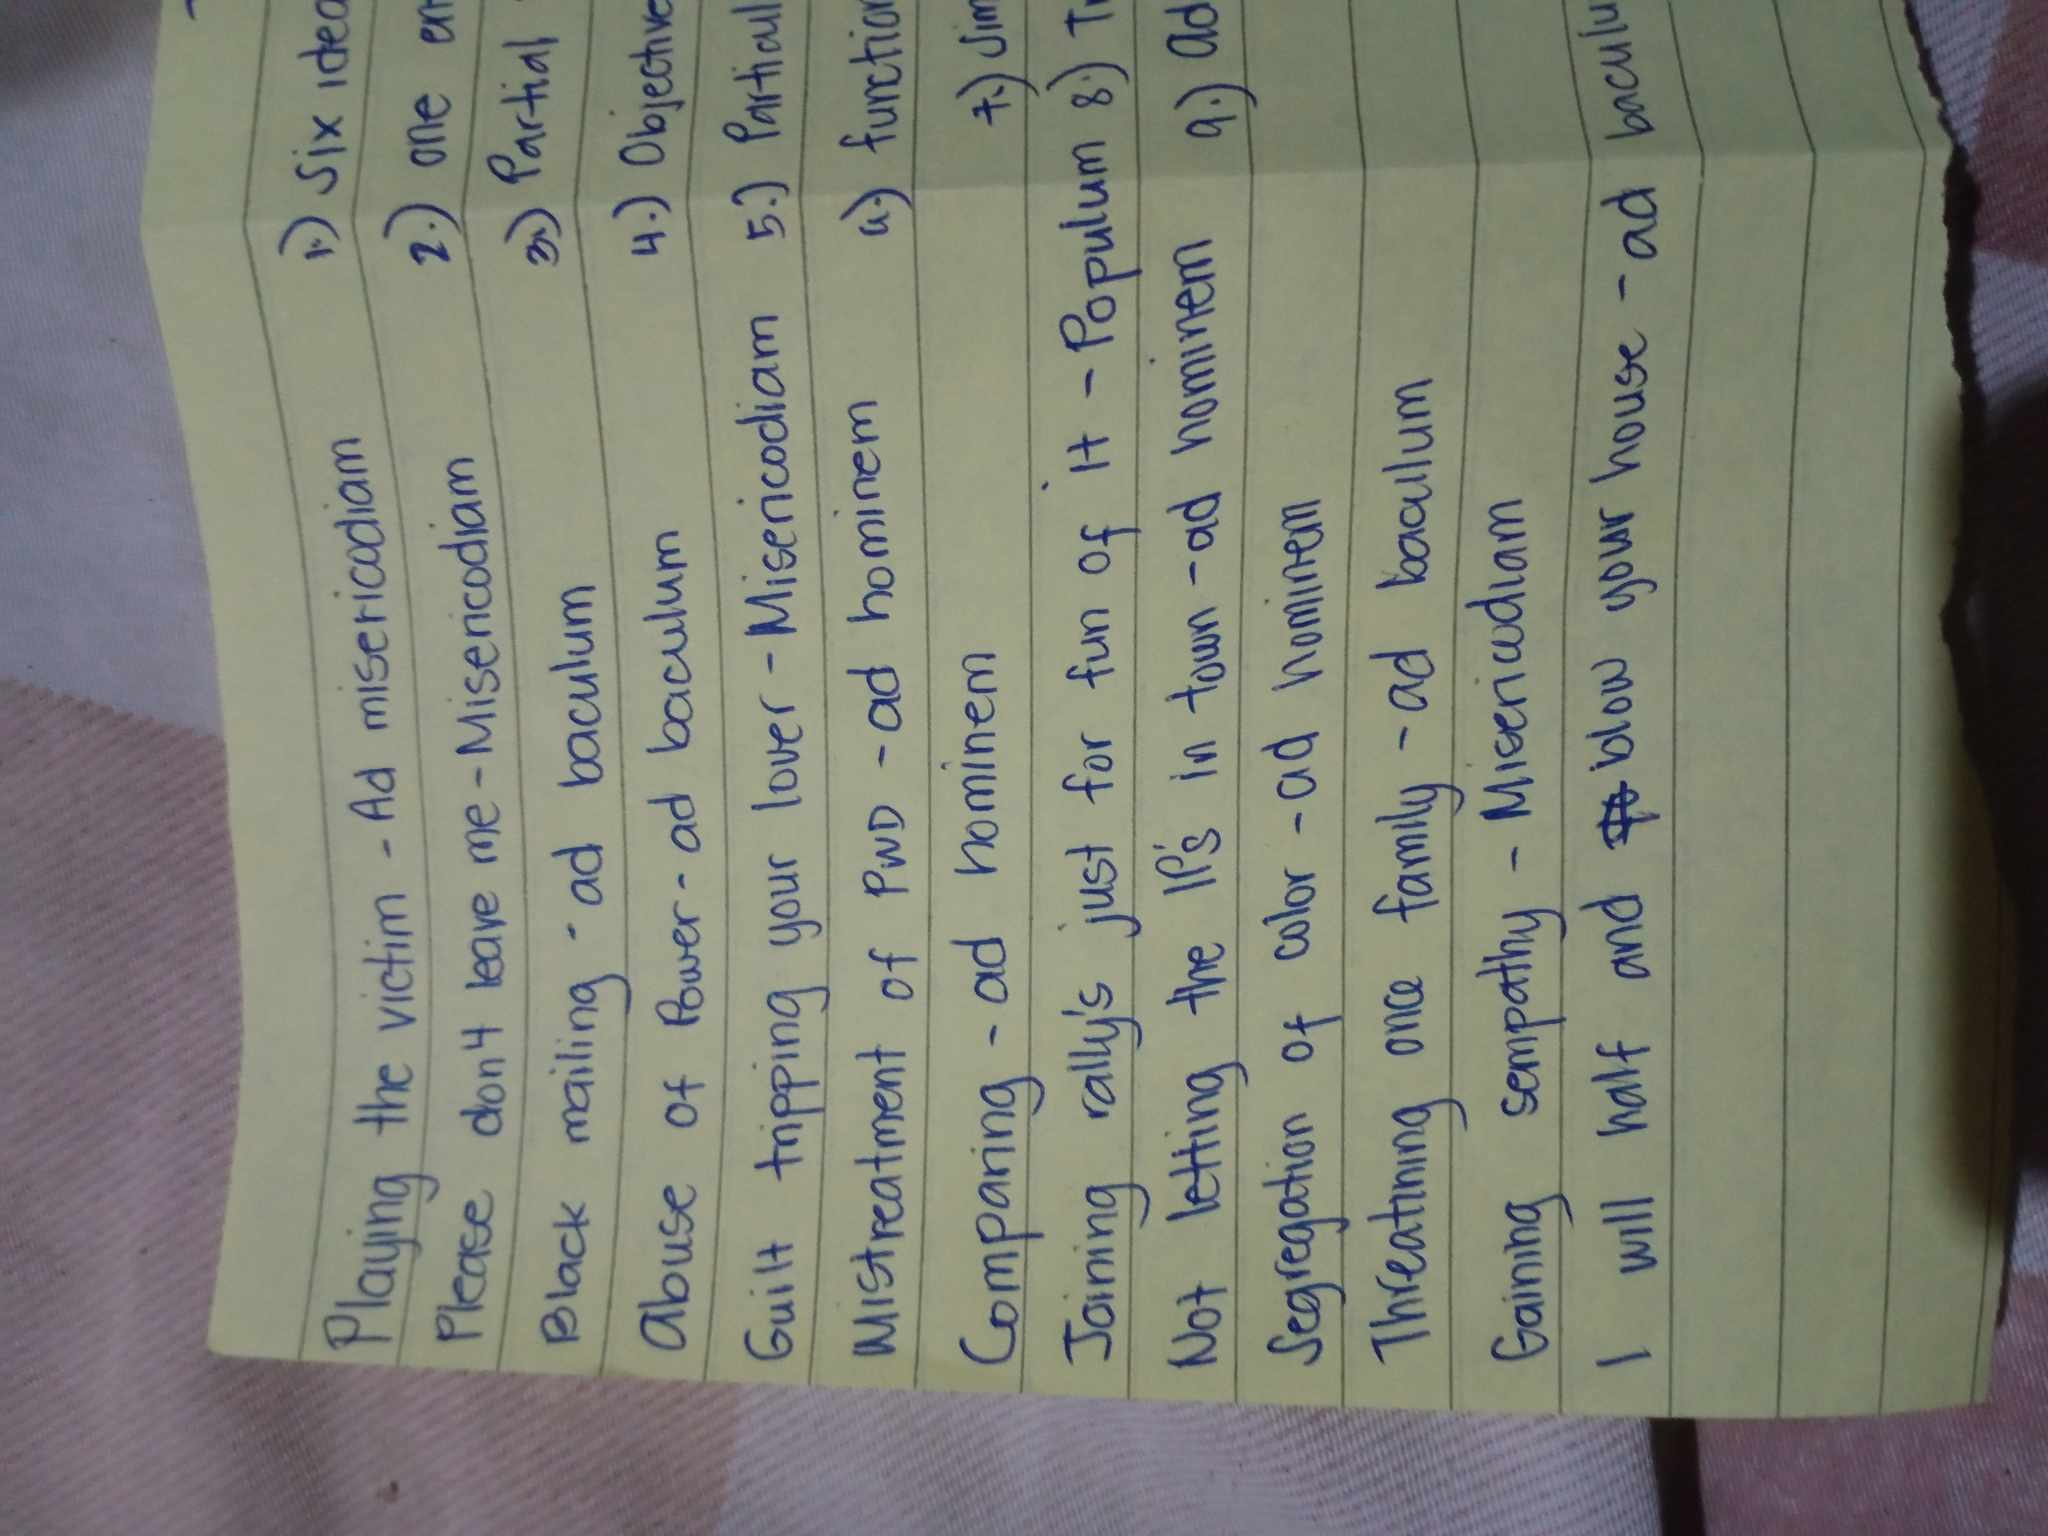 Playing the victim - Ad misericodiam
Please don4 leave me - Misericodiam
Black mailing - ad baculum
Abuse of Power - ad baculum
Guilt tripping your lover - Misericodiam
Mistreatment of PWD - ad hominem
Comparing - ad hominem
Joining rally's just for fun of it - Populum
Not letting the IP's in town - ad hominem
Segregation of color - ad hominem
Threatining once family - ad baculum
Gaining sempathy - Misericodiam
I will half and blow your house - ad baculu
1.) Six idea
2.) one en
3.) Partial
4.) Objective
5.) Partial
6.) function
7.) Sim
8.)
9.) ad